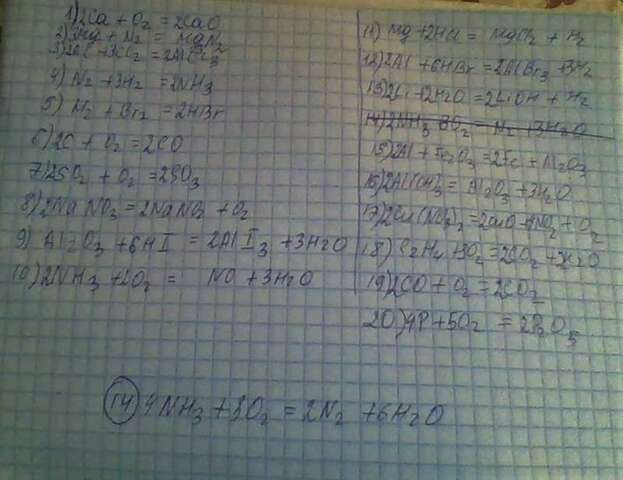 1) 2Ca + O2 = 2CaO
2) 3Mg + N2 = MgN2
3) 2Al + 3Cl2 = 2AlCl3
4) N2 + 3H2 = 2NH3
5) H2 + Br2 = 2HBr
6) 2C + O2 = 2CO
7) 2SO2 + O2 = 2SO3
8) 2NaNO3 = 2NaNO2 + O2
9) Al2O3 + 6HI = 2AlI3 + 3H2O
10) 2NH3 + 2O2 = NO + 3H2O
11) Mg + 2HCl = MgCl2 + H2
12) 2Al + 6HBr = 2AlBr3 + 3H2
13) 2Li + 2H2O = 2LiOH + H2
14) 2NH3 O2 = N2 + 3H2O
15) 2Al + Fe2O3 = 2Fe + Al2O3
16) 2Al(OH)3 = Al2O3 + 3H2O
17) 2Cu(NO3)2 = 2CuO + 4NO2 + O2
18) C2H4 + 3O2 = 2CO2 + 2H2O
19) 2CO + O2 = 2CO2
20) 4P + 5O2 = 2P2O5
14) 4NH3 + 3O2 = 2N2 + 6H2O